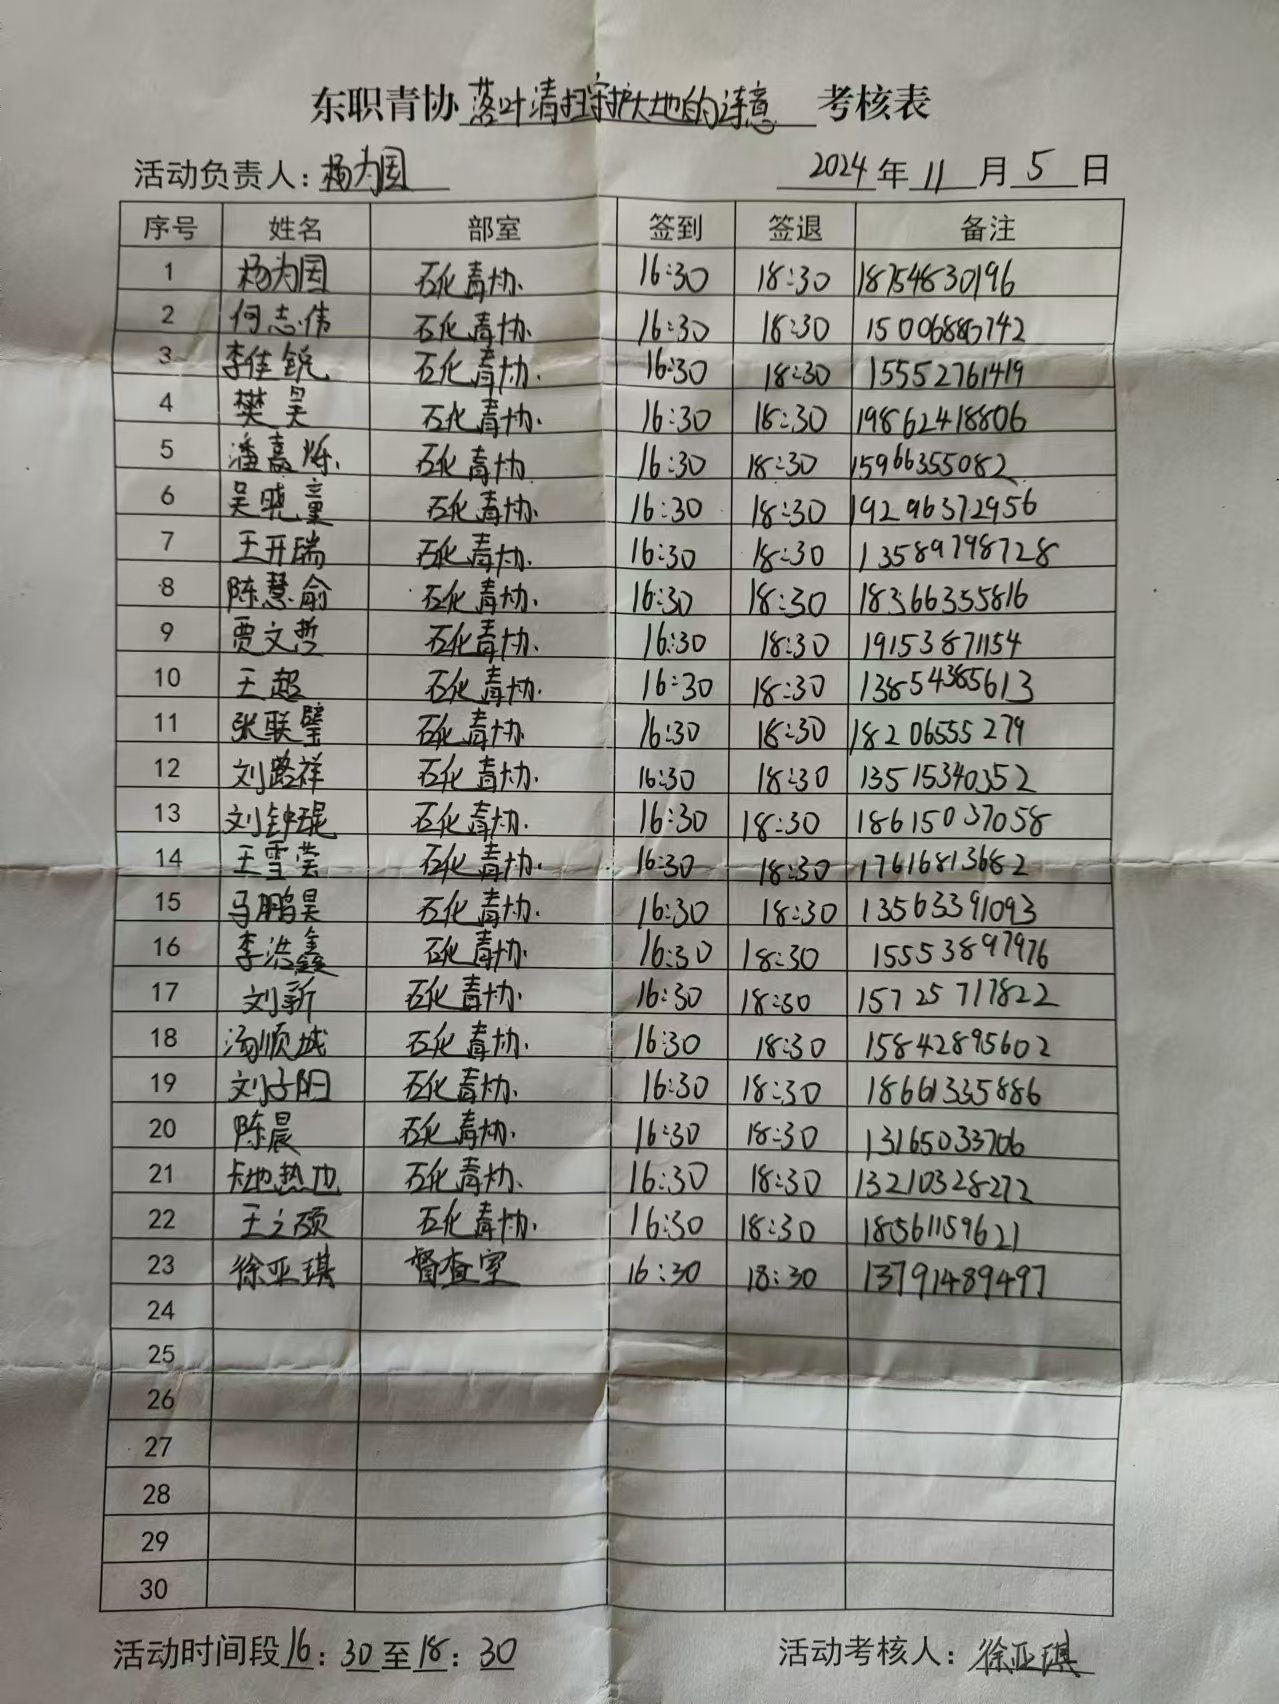 东职青协落叶清扫守护大地的诗意考核表
活动负责人：杨为国 2024年11月5日
序号 姓名 部室 签到 签退 备注
1 杨为国 石化青协. 16:30 18:30 18754830196
2 何志伟 石化青协. 16:30 18:30 15006880742
3 李佳锐 石化青协. 16:30 18:30 15552761419
4 樊昊 石化青协. 16:30 18:30 19862418806
5 潘嘉烁 石化青协. 16:30 18:30 15966355082
6 吴晓童 石化青协. 16:30 18:30 19296372956
7 王开瑞 石化青协. 16:30 18:30 13589798728
8 陈慧俞 石化青协. 16:30 18:30 18366355816
9 贾文哲 石化青协. 16:30 18:30 19153871154
10 王超 石化青协. 16:30 18:30 13854385613
11 张联璧 石化青协. 16:30 18:30 18206555279
12 刘路祥 石化青协. 16:30 18:30 13515340352
13 刘钟琨 石化青协. 16:30 18:30 18615037058
14 王雪莹 石化青协. 16:30 18:30 17616813682
15 马鹏昊 石化青协. 16:30 18:30 13563391093
16 李浩鑫 石化青协. 16:30 18:30 15553897976
17 刘新 石化青协. 16:30 18:30 15725717822
18 汤顺城 石化青协. 16:30 18:30 15842895602
19 刘子阳 石化青协. 16:30 18:30 18661335886
20 陈晨 石化青协. 16:30 18:30 13165033706
21 卡地热也 石化青协. 16:30 18:30 13210328272
22 王之硕 石化青协. 16:30 18:30 18561159621
23 徐亚琪 督查室 16:30 18:30 13791489497
24
25
26
27
28
29
30
活动时间段16:30至18:30 活动考核人：徐亚琪